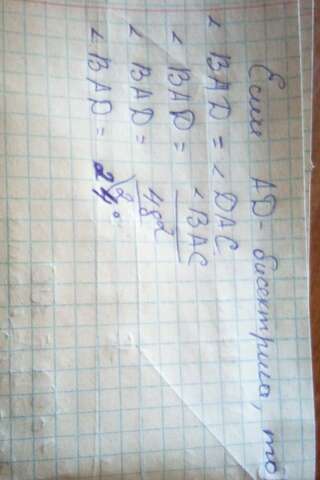 Если AD - бисектриса, то
∠ BAD = ∠ DAC
∠ BAD = ∠BAC / 2
∠ BAD = 48 / 2
∠ BAD = 24°